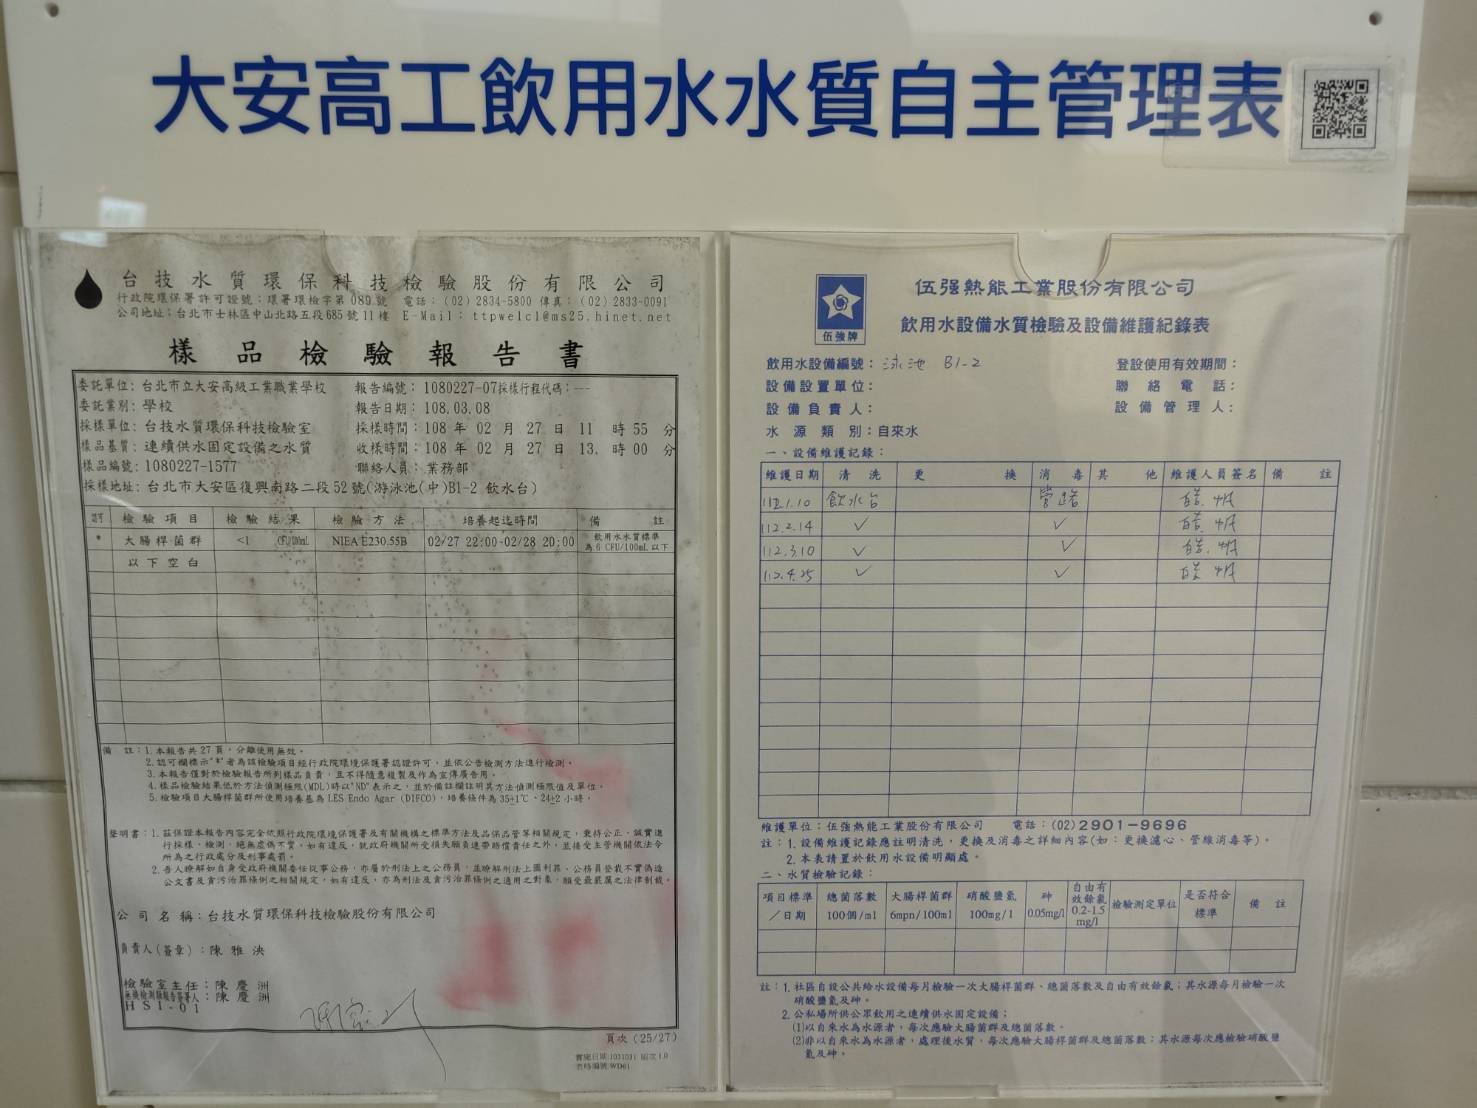 大安高工飲用水水質自主管理表
台技水質環保科技檢驗股份有限公司
行政院環保署許可證號：環署環檢字第 089 號 電話：(02) 2834-5800 傳真：(02) 2833-0091
公司地址：台北市士林區中山北路五段 685 號 11 樓 E-Mail：ttpwelcl@ms25.hinet.net
樣品檢驗報告書
委託單位：台北市立大安高級工業職業學校 報告編號：1080227-07採樣行程代碼：---
委託業別：學校 報告日期：108.03.08
採樣單位：台技水質環保科技檢驗室 採樣時間：108 年 02 月 27 日 11 時 55 分
樣品基質：連續供水固定設備之水質 收樣時間：108 年 02 月 27 日 13. 時 00 分
樣品編號：1080227-1577 聯絡人員：業務部
採樣地址：台北市大安區復興南路二段 52 號(游泳池(中)B1-2 飲水台)
認可 檢驗項目 檢驗結果 檢驗方法 培養起迄時間 備註
* 大腸桿菌群 <1 CFU/100mL NIEA E230.55B 02/27 22:00-02/28 20:00 飲用水水質標準
為 6 CFU/100mL 以下
以下空白
備 註：1. 本報告共 27 頁，分離使用無效。
2. 認可欄標示"*"者為該檢驗項目經行政院環境保護署認證許可，並依公告檢測方法進行檢測。
3. 本報告僅對於檢驗報告所列樣品負責，且不得隨意複製及作為宣傳廣告用。
4. 樣品檢驗結果低於方法偵測極限(MDL)時以"ND"表示之，並於備註欄註明其方法偵測極限值及單位。
5. 檢驗項目大腸桿菌群所使用培養基為 LES Endo Agar (DIFCO)，培養條件為 35±1℃、24±2 小時。
聲明書：1. 茲保證本報告內容完全依照行政院環境保護署及有關機構之標準方法及品保品管等相關規定，秉持公正、誠實進
行採樣、檢測，絕無虛偽不實，如有違反，就政府機關所受損失願負連帶賠償責任之外，並接受主管機關依法令
所為之行政處分及刑事處罰。
2. 吾人瞭解如自身受政府機關委任從事公務，亦屬於刑法上之公務員，並瞭解刑法上圖利罪、公務員登載不實偽造
公文書及貪污治罪條例之相關規定，如有違反，亦為刑法及貪污治罪條例之適用之對象，願受最嚴厲之法律制裁。
公司名稱：台技水質環保科技檢驗股份有限公司
負責人(簽章)：陳雅泱
檢驗室主任：陳慶洲
無機檢測類報告簽署人：陳慶洲
HSI-01
頁次 (25/27)
實施日期:1031031 版次1.0
表格編號:WD61
伍強牌
伍强熱能工業股份有限公司
飲用水設備水質檢驗及設備維護紀錄表
飲用水設備編號：泳池 B1-2 登設使用有效期間：
設備設置單位： 聯絡電話：
設備負責人： 設備管理人：
水源類別：自來水
一、設備維護記錄：
維護日期 清洗 更換 消毒 其他 維護人員簽名 備註
112.1.10 飲水台 管路
112.2.14 ✓ ✓
112.3.10 ✓ ✓
112.4.25 ✓ ✓
維護單位：伍强熱能工業股份有限公司 電話：(02)2901-9696
註：1. 設備維護記錄應註明清洗，更換及消毒之詳細內容(如：更換濾心、管線消毒等)。
2. 本表請置於飲用水設備明顯處。
二、水質檢驗記錄：
項目標準／日期 總菌落數 100個/ml 大腸桿菌群 6mpn/100ml 硝酸鹽氮 100mg/l 砷 0.05mg/l 自由有效餘氯 0.2-1.5 mg/l 檢驗測定單位 是否符合標準 備註
註：1. 社區自設公共給水設備每月檢驗一次大腸桿菌群、總菌落數及自由有效餘氯；其水源每月檢驗一次
硝酸鹽氮及砷。
2. 公私場所供公眾飲用之連續供水固定設備；
(1)以自來水為水源者，每次應驗大腸菌群及總菌落數。
(2)非以自來水為水源者，處理後水質，每次應驗大腸桿菌群及總菌落數；其水源每次應檢驗硝酸鹽
氮及砷。